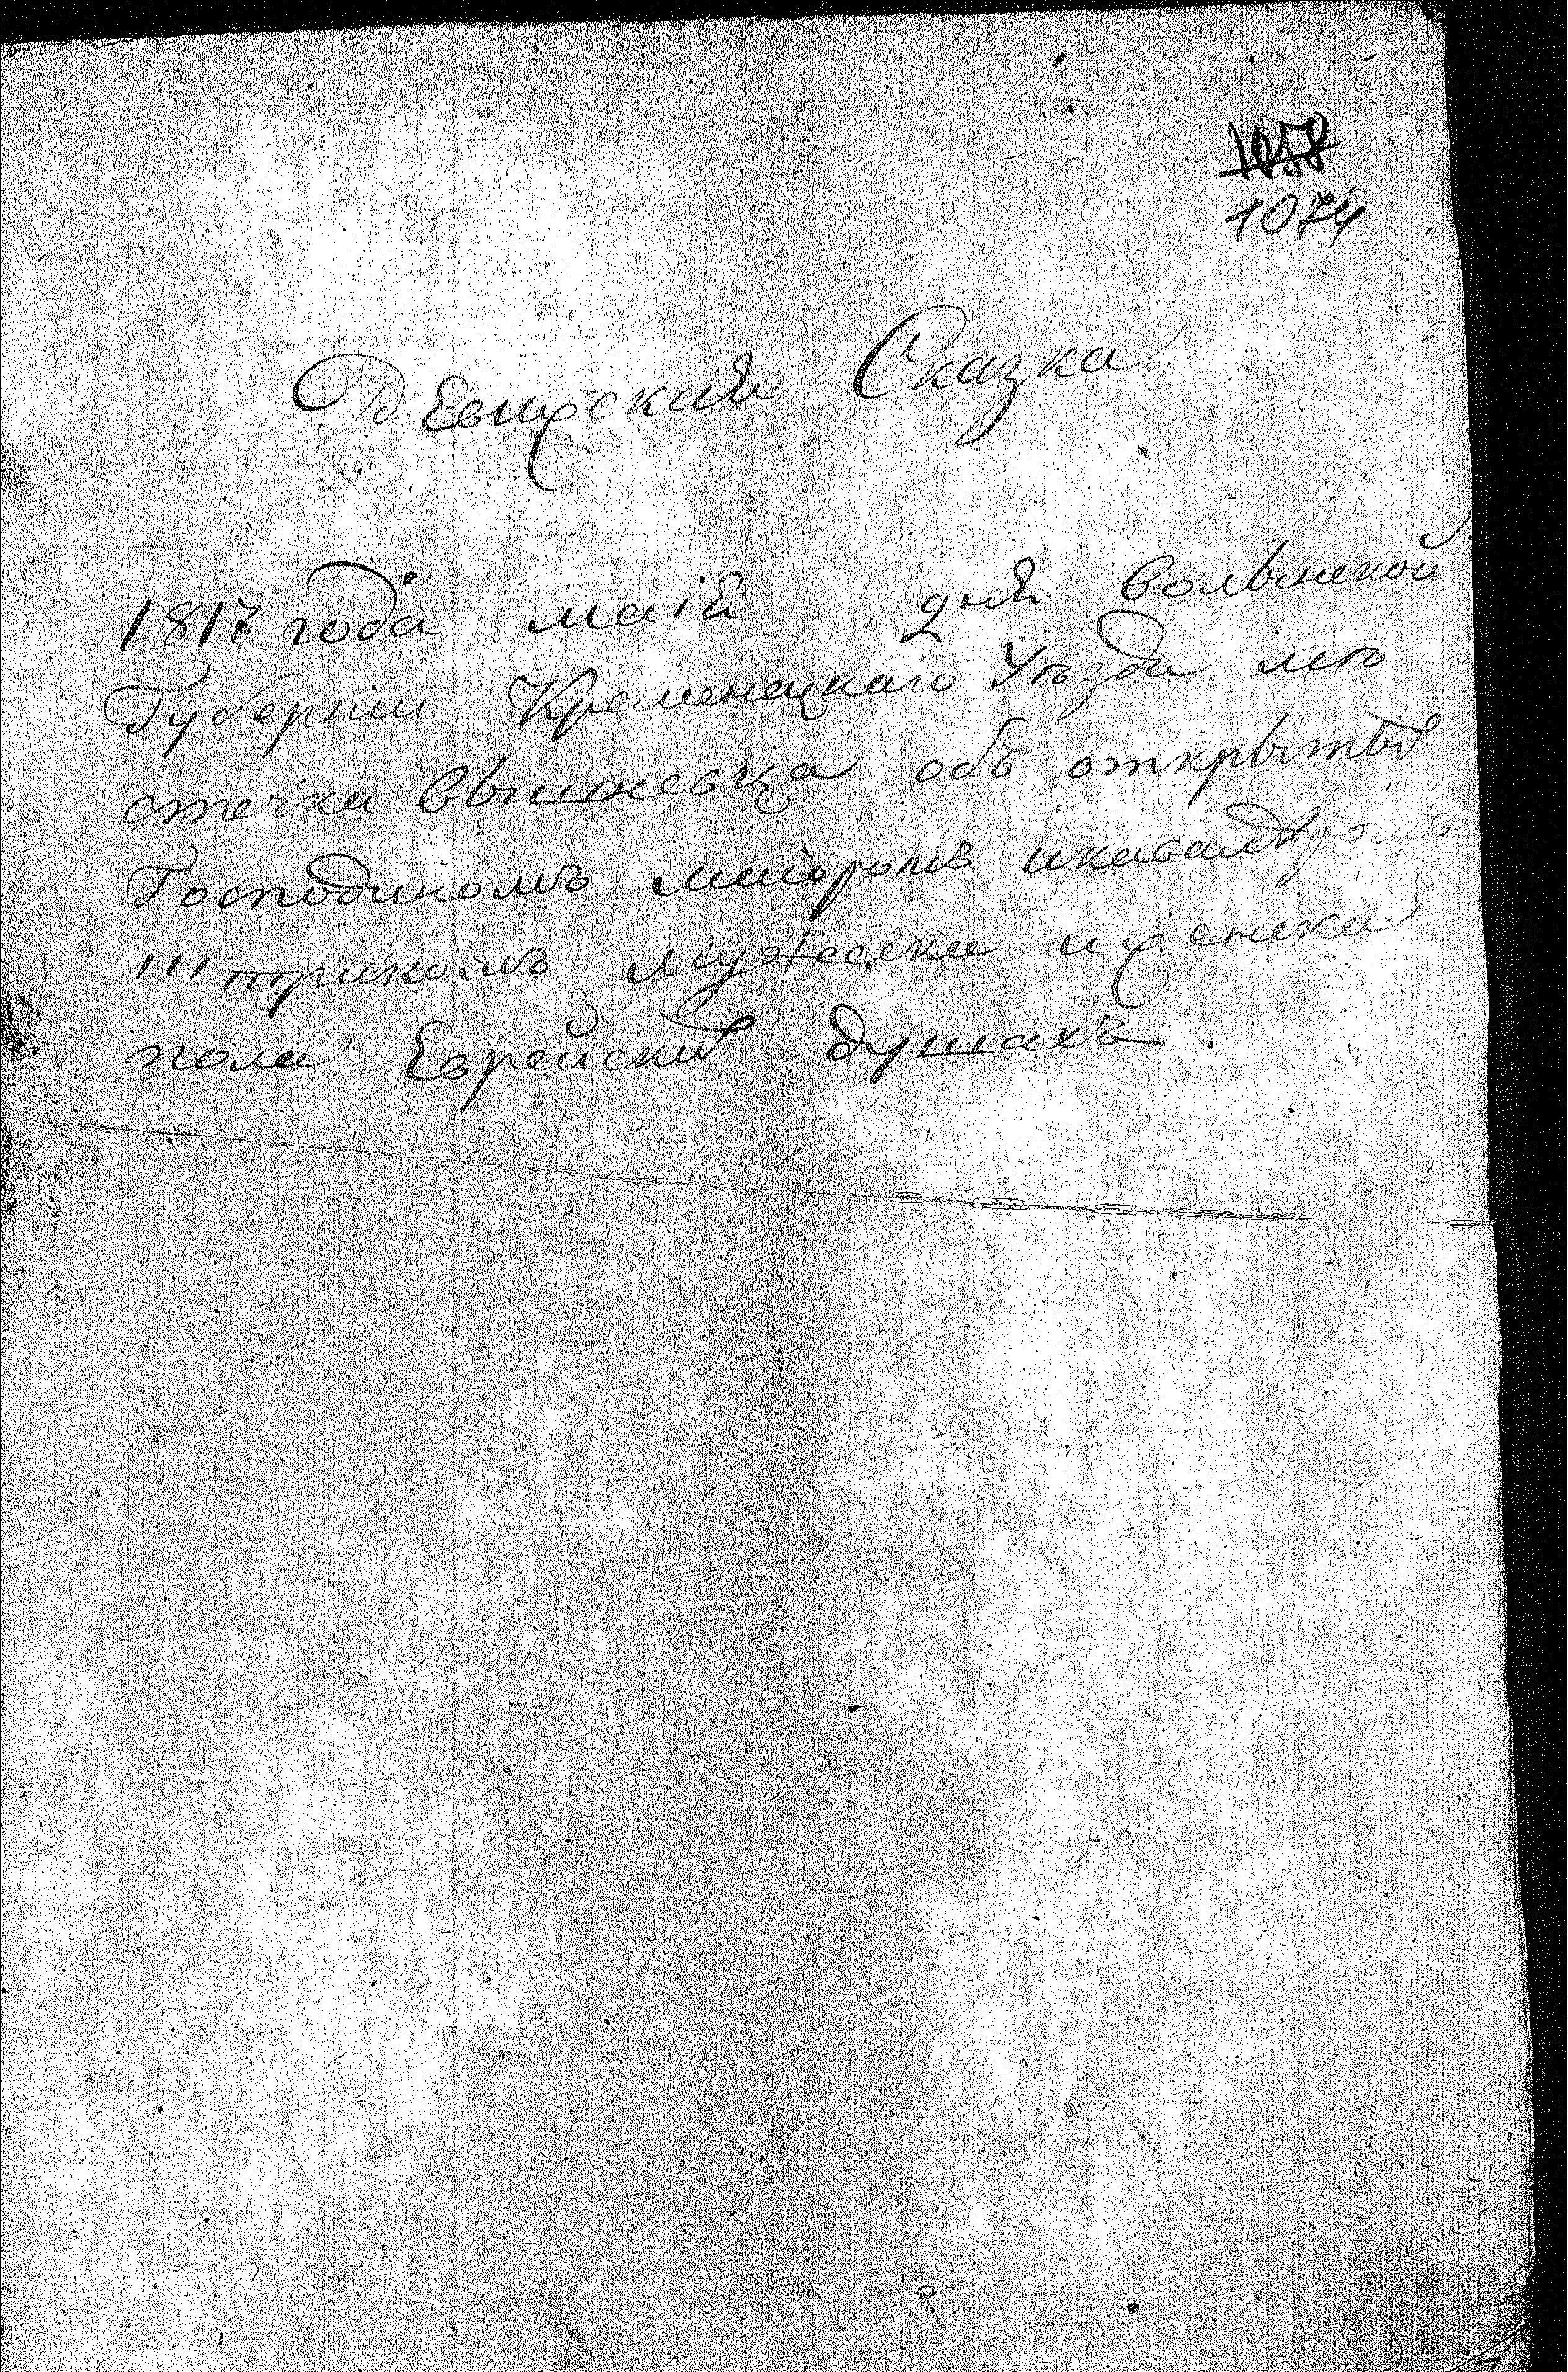 1058
1074
Ревизская Сказка
1817 года маія дня Волынской
Губерніи Кременецкаго Уѣзда мѣ
стечка Вышневца объ открытыхъ
Господиномъ маіоромъ икавалеромъ
мужеска и женска
пола Еврейских душахъ.